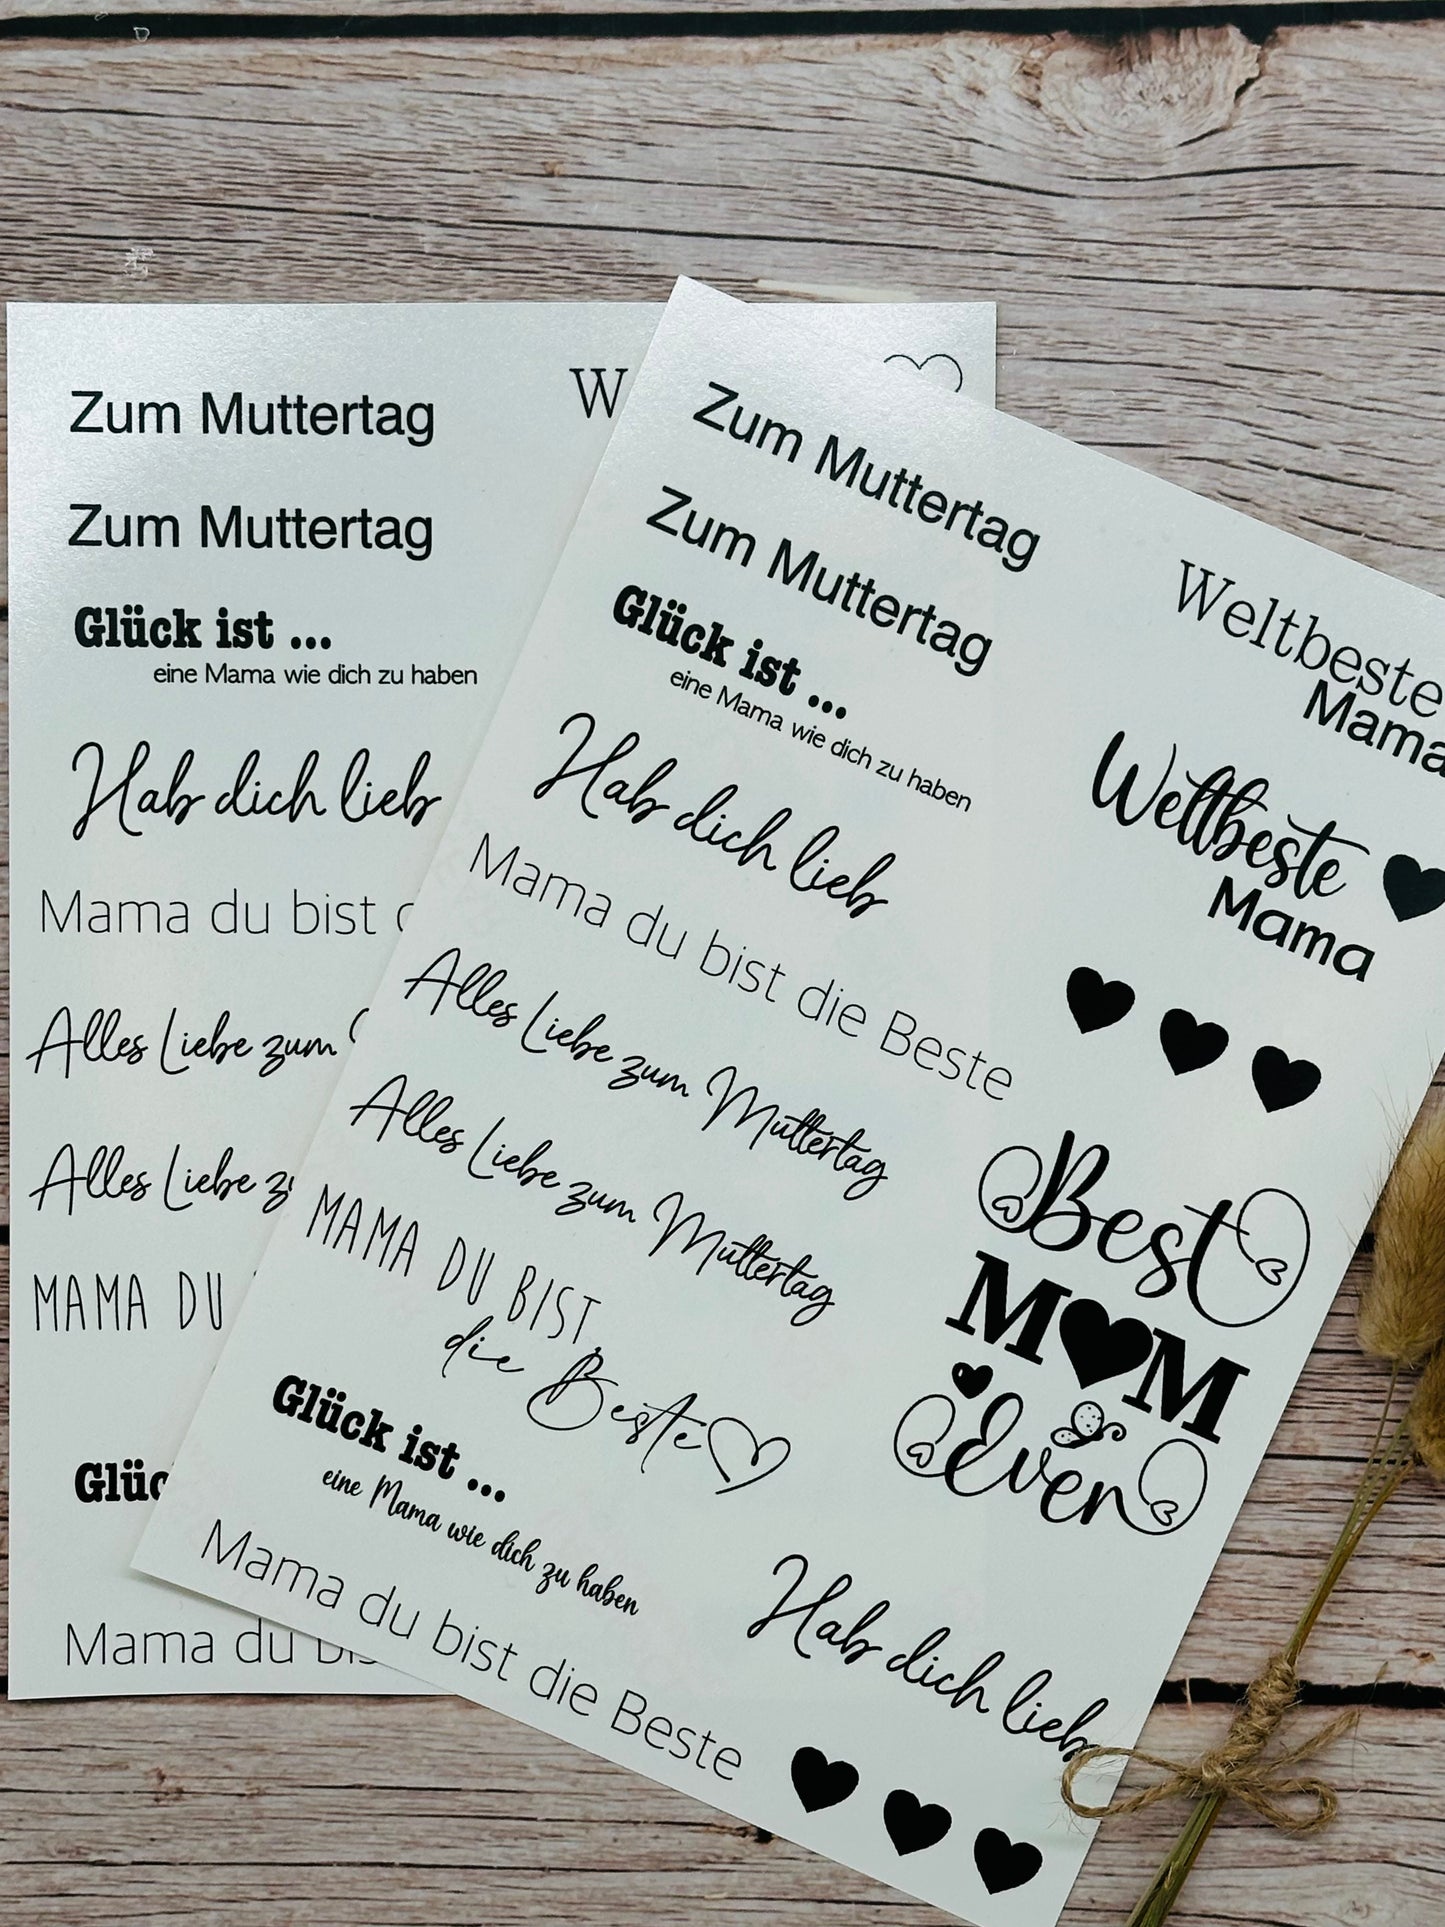 Zum Muttertag
Zum Muttertag
Glück ist ...
eine Mama wie dich zu haben
Hab dich lieb
Mama du bist
Alles Liebe zum
Alles Liebe
MAMA DU
Mama du
W
Zum Muttertag
Zum Muttertag
Glück ist ...
eine Mama wie dich zu haben
Hab dich lieb
Mama du bist die Beste
Alles Liebe zum Muttertag
Alles Liebe zum Muttertag
MAMA DU BIST
die Beste
Glück ist ...
eine Mama wie dich zu haben
Mama du bist die Beste
Weltbeste
Mama
Weltbeste
Mama
Best
MOM
Ever
Hab dich lieb